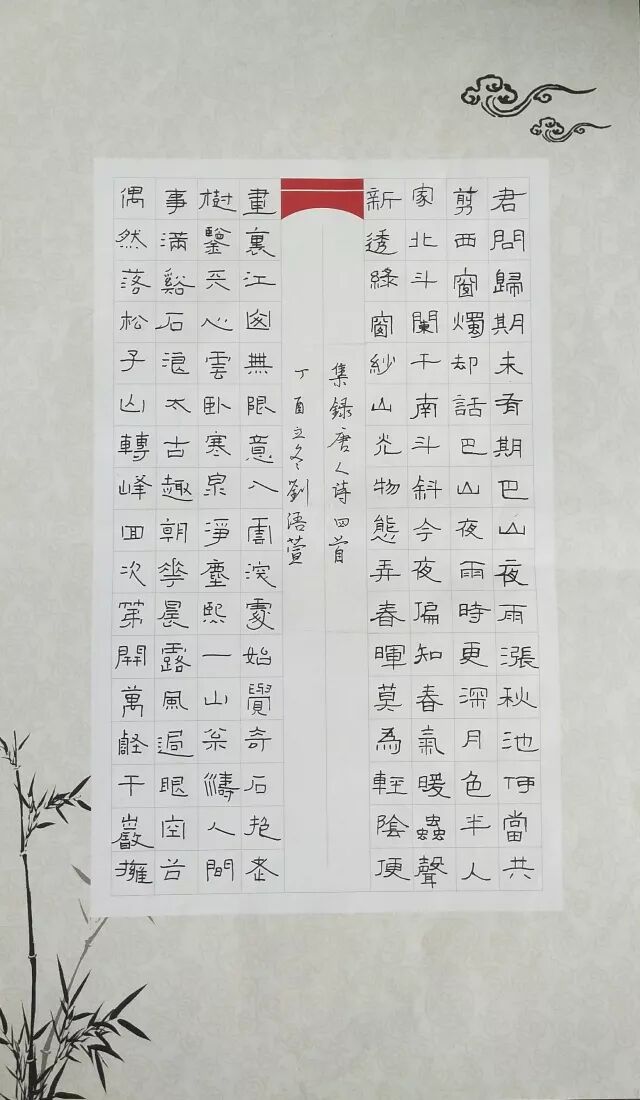 君問歸期未有期巴山夜雨漲秋池何當共
剪西窗燭却話巴山夜雨時更深月色半人
家北斗闌干南斗斜今夜偏知春氣暖蟲聲
新透綠窗紗山光物態弄春暉莫為輕陰便
集錄唐人詩四首
丁酉立冬劉語萱
畫裏江無限意入雲深處始覺奇石抱老
樹鑒天心雲臥寒泉淨塵熙一山枀濤人間
事滿谿石浪太古趣朝華晨露風過眼空谷
偶然落松子山轉峰回次第開萬壑千巖擁